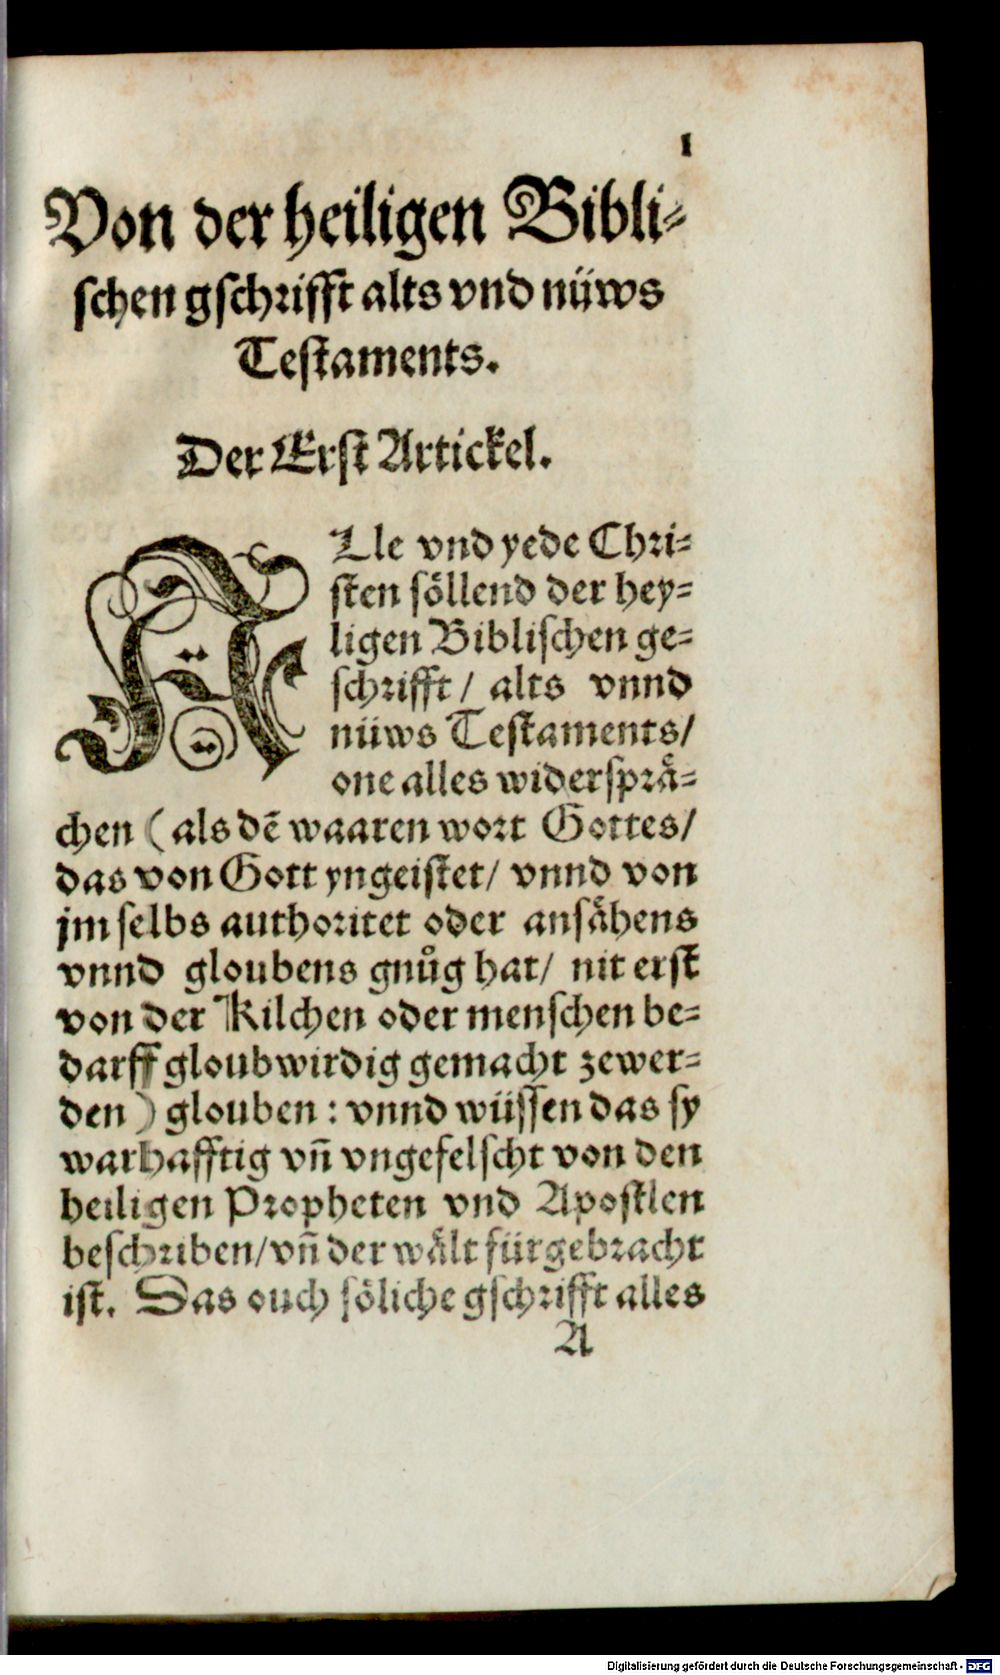 1
Von der heiligen Bibli-
schen gschrifft alts vnd nüws
Testaments.
Der Erst Artickel.
ALle vnd yede Chri-
sten söllend der hey-
ligen Biblischen ge-
schrifft / alts vnnd
nüws Testaments/
one alles widersprä-
chen (als dẽ waaren wort Gottes/
das von Gott yngeistet/ vnnd von
jm selbs authoritet oder ansähens
vnnd gloubens gnůg hat/ nit erst
von der Kilchen oder menschen be-
darff gloubwirdig gemacht zewer-
den) glouben: vnnd wüssen das sy
warhafftig vñ vngefelscht von den
heiligen Propheten vnd Apostlen
beschriben/vñ der wält fürgebracht
ist. Das ouch söliche gschrifft alles
A
Digitalisierung gefördert durch die Deutsche Forschungsgemeinschaft - DFG